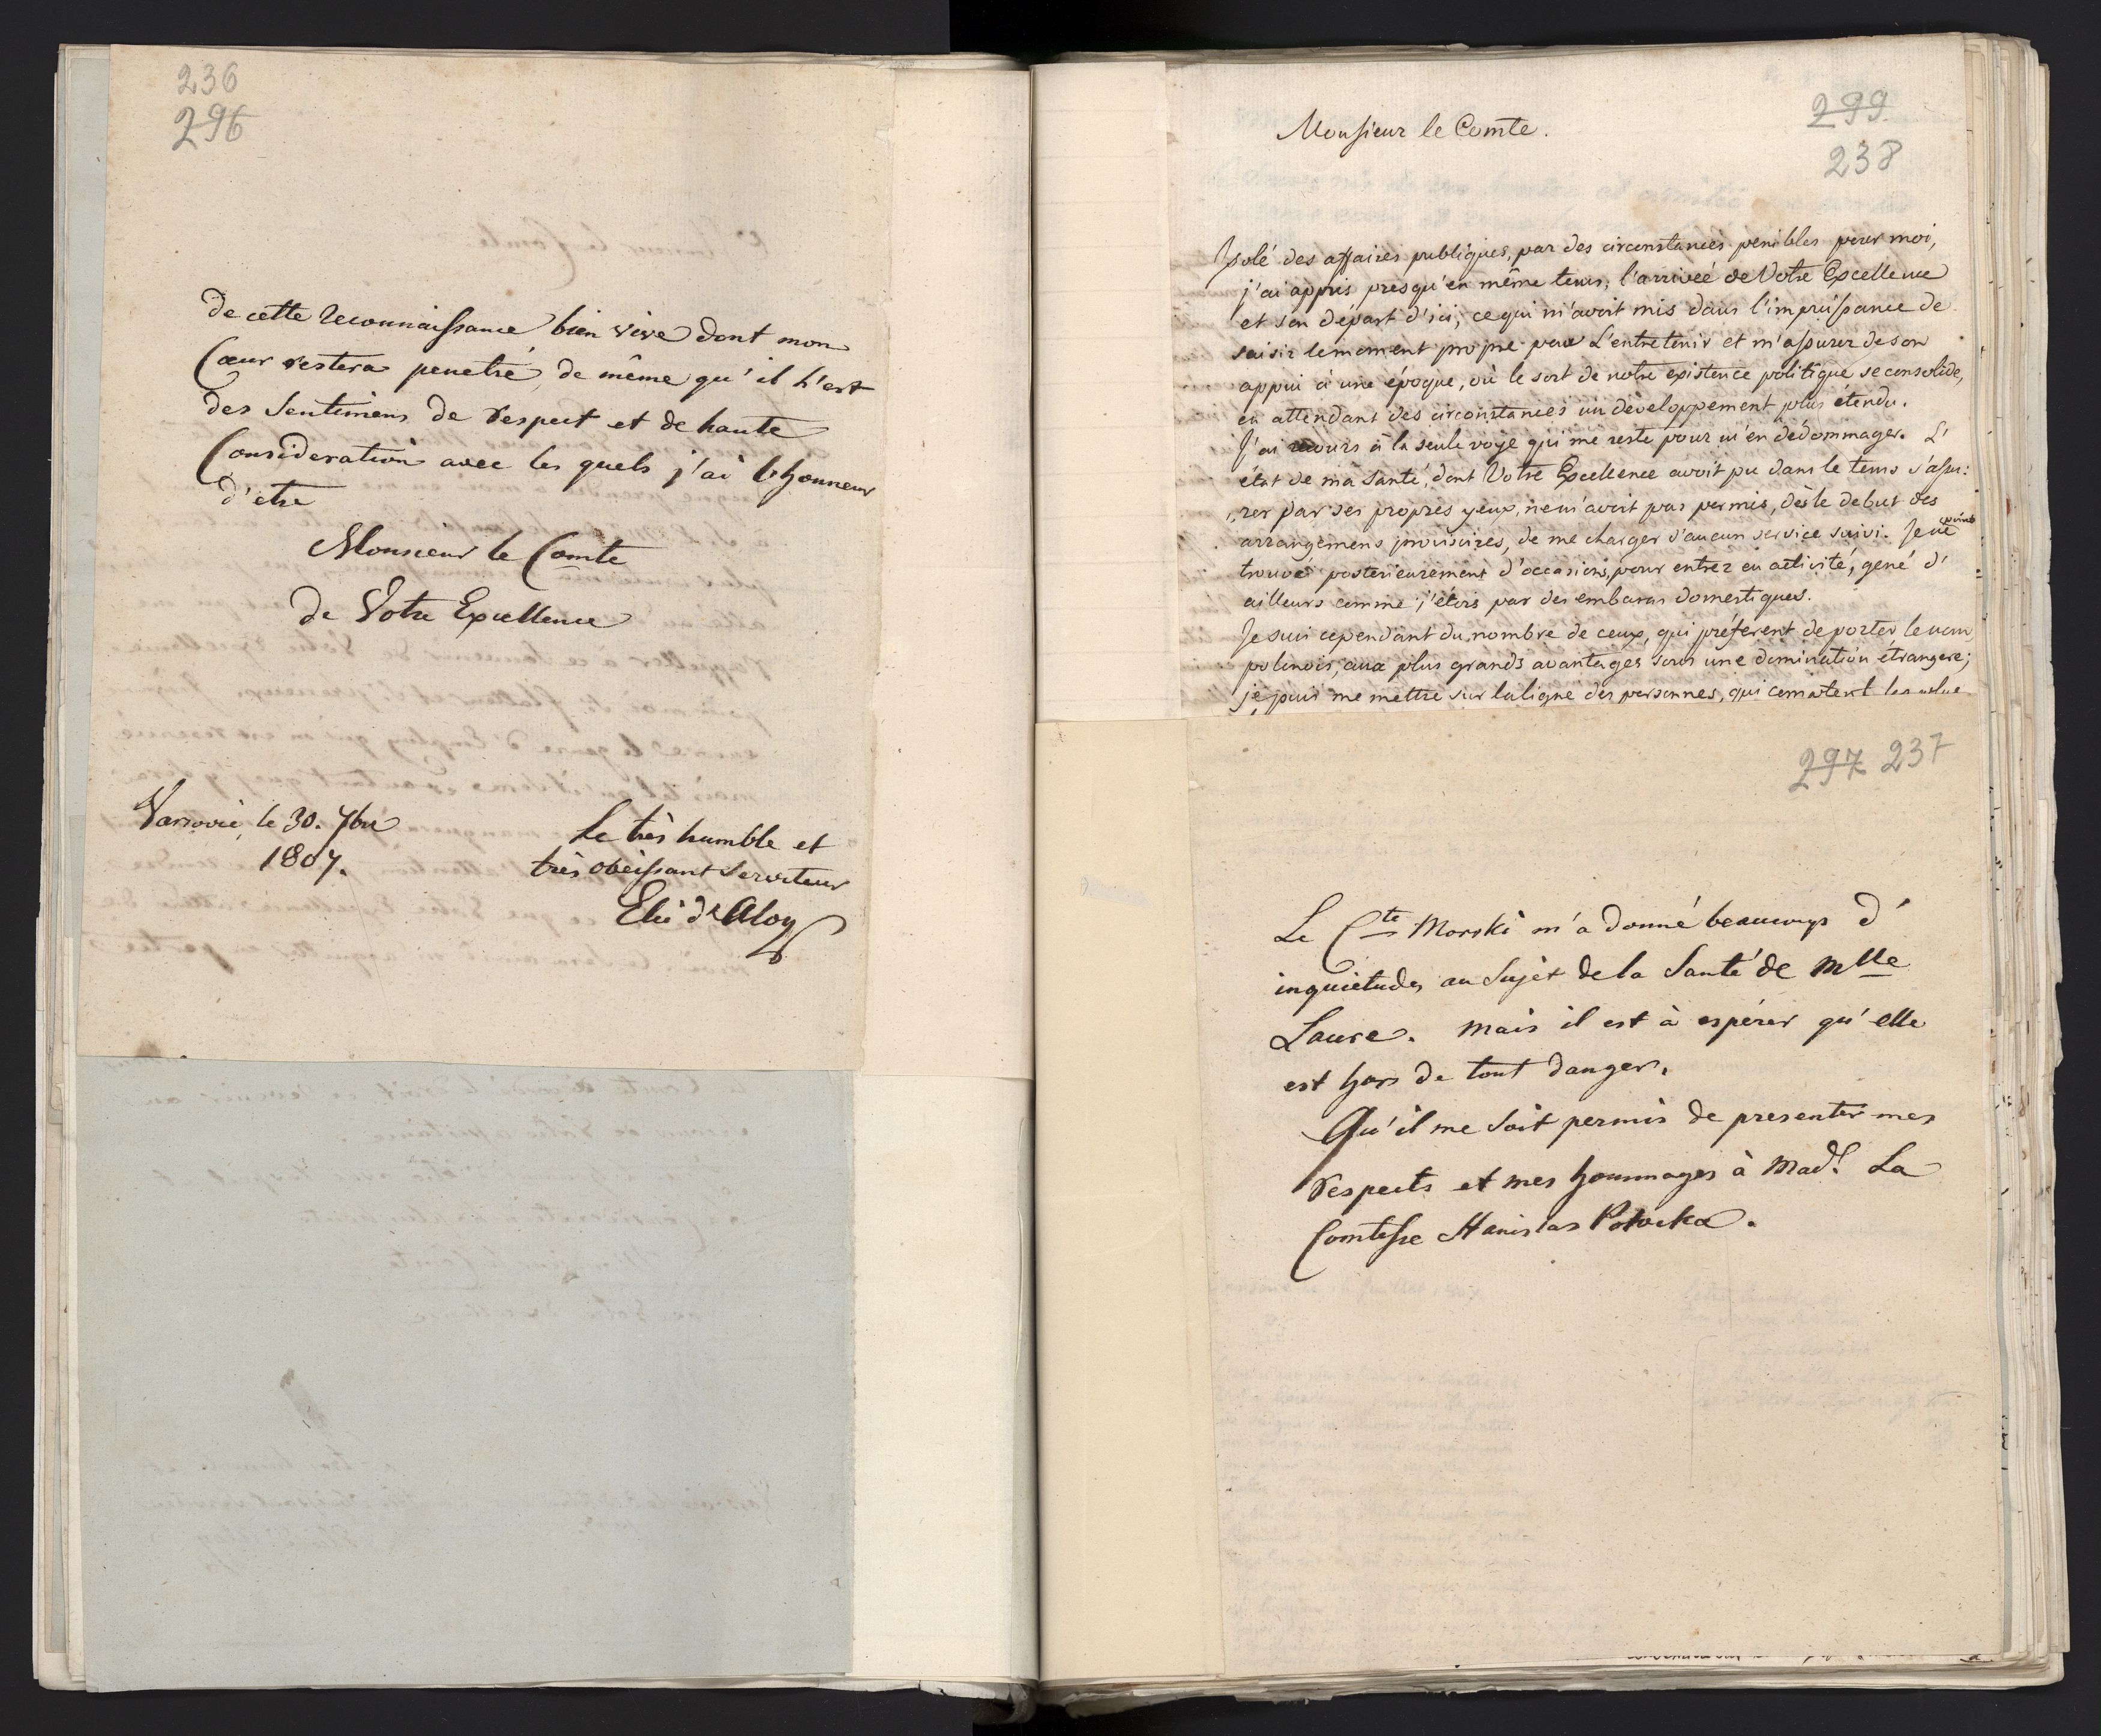 236
296
de cette reconnaissance bien vive dont mon
Cœur restera penetré, de même qu'il l'est
des Sentimens de respect et de haute
Consideration avec les quels j'ai l'honneur
d'etre
Monsieur le Comte
de Votre Excellence
Varsovie, le 30. 7bre
1807.
Le très humble et
très obéissant Serviteur
Elie d'Aloy
299
238
Monsieur le Comte.
Isolé des affaires publiques, par des circonstances penibles pour moi,
j'ai appris presqu'en même tems, l'arrivée de Votre Excellence
et son départ d'ici, ce qui m'avoit mis dans l'impuissance de
saisir le moment propre pour L'entretenir et m'assurer de son
appui à une époque, où le sort de notre existence politique se consolide,
en attendant des circonstances un développement plus étendu.
J'ai recours à la seule voye qui me reste pour m'en dédommager. L'
état de ma santé, dont Votre Excellence avoit pu dans le tems s'assu:
„rer par ses propres yeux, ne m'avoit pas permis, dès le debut des
arrangemens provisoires, de me charger d'aucun service suivi. Je ne point
trouvé posterieurement d'occasions, pour entrer en activité, gené d'
ailleurs comme j'étois par des embaras domestiques.
Je suis cependant du nombre de ceux, qui préferent de porter le nom
polonois, aux plus grands avantages sous une domination étrangere;
je puis me mettre sur la ligne des personnes, qui comptent les
297 237
Le Cte Morski m'a donné beaucoup d'
inquietudes au Sujet de la Santé de Mlle
Laure. Mais il est à espérer qu'elle
est hors de tout danger.
Qu'il me Soit permis de presenter mes
respects et mes hommages à Made La
Comtesse Stanislas Potocka.